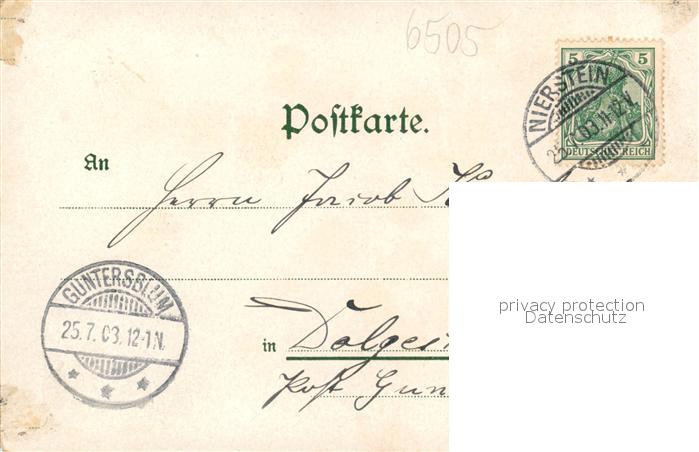 6505
5 5
NIERSTEIN
25.7.03.11-12V.
DEUTSCHES REICH
Postkarte.
An
Herrn Jacob
GUNTERSBLUM
25.7.03.12-1N.
privacy protection
Datenschutz
in Dolges
Post Gun